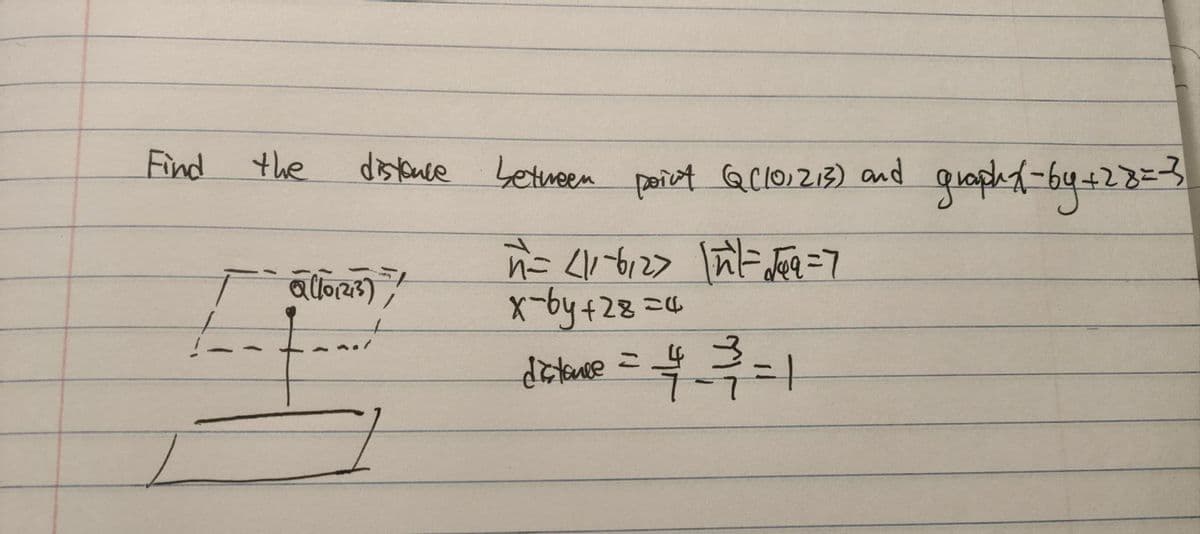 Find the distance between point Q(10,2,3) and graph x-6y+2z=-3
n⃗ = <1,-6,2> |n⃗|=√49=7
Q(10,2,3)
x-6y+2z=4
distance = 4/7 - -3/7 = 1